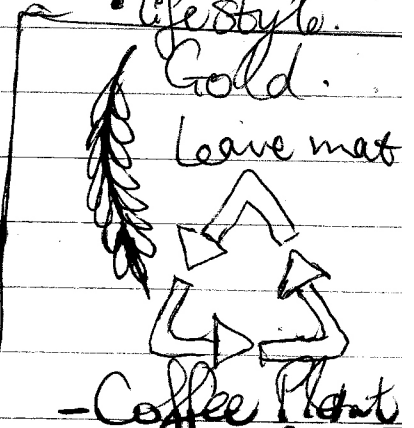 • lifestyle.
Gold.
Leave mat
- Coffee Plant